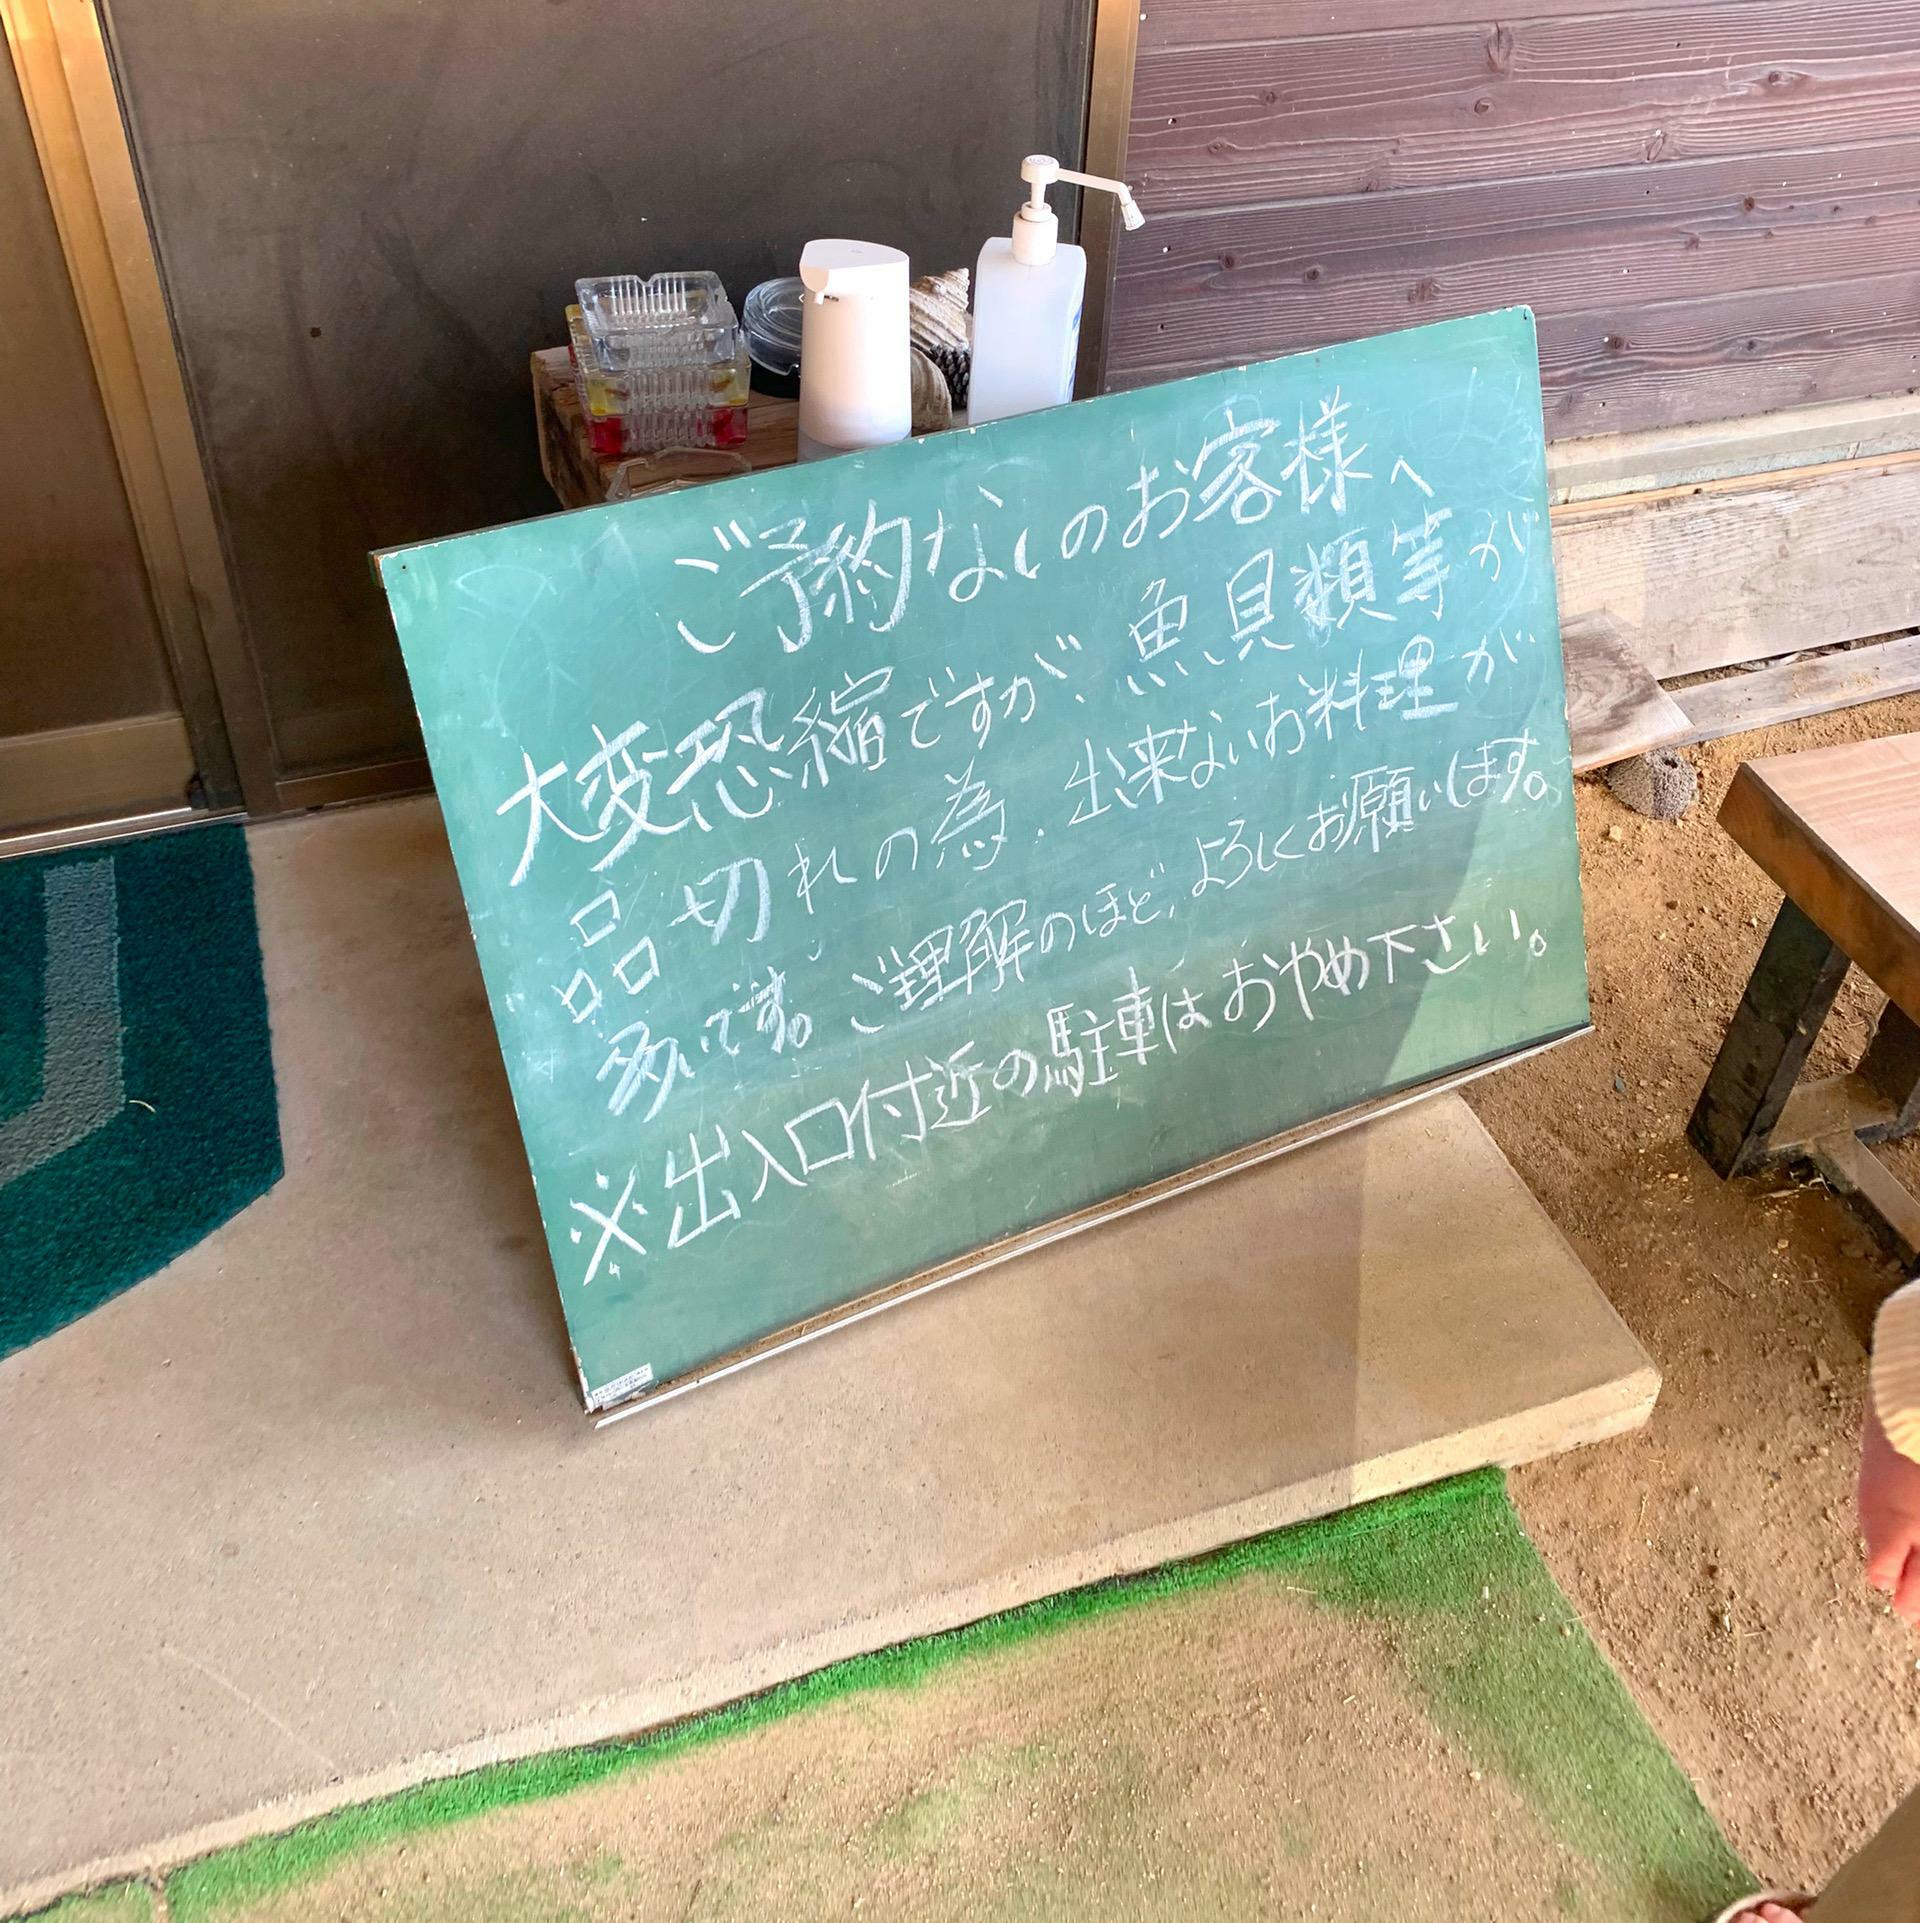 ご予約なしのお客様へ
大変恐縮ですが、魚貝類等が
品切れの為、出来ないお料理が
多いです。ご理解のほど、よろしくお願いします。
※出入口付近の駐車はおやめ下さい。